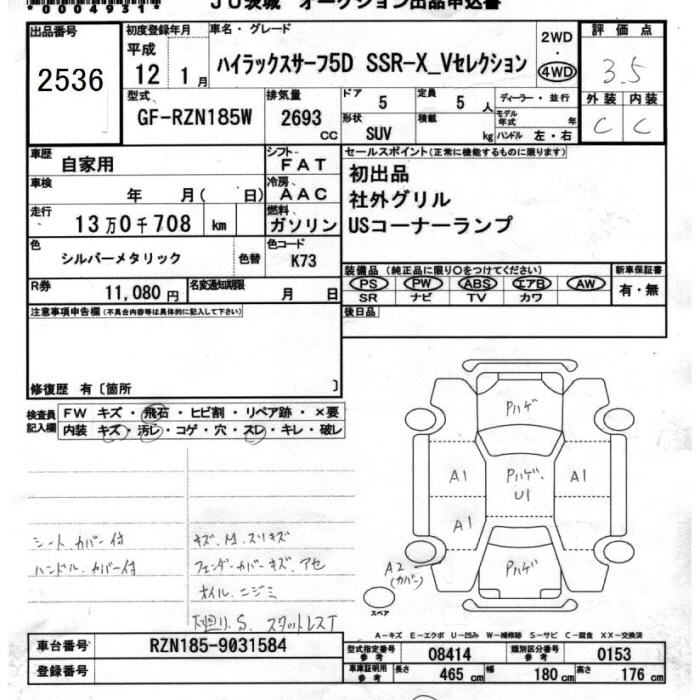 00049311
JU茨城 オークション出品申込書
出品番号 2536
初度登録年月 平成 12 1月
車名・グレード ハイラックスサーフ5D SSR-X_Vセレクション
2WD・4WD
評価点 3.5
外装 内装
C C
型式 GF-RZN185W
排気量 2693 cc
ドア 5 定員 5 人
形状 SUV 積載 kg
ディーラー・並行
モデル年式 年
ハンドル 左・右
車歴 自家用
シフト FAT
車検 年 月( 日)
冷房 AAC
走行 13万0千708 km
燃料 ガソリン
色 シルバーメタリック 色替
色コード K73
R券 11,080円
名変通知期限 月 日
セールスポイント(正常に機能するものに限ります)
初出品
社外グリル
USコーナーランプ
装備品(純正品に限り○をつけてください)
PS PW ABS エアB AW
SR ナビ TV カワ
新車保証書 有・無
後日品
注意事項申告欄(不具合内容等は具体的に記入して下さい)
修復歴 有〔箇所 〕
検査員記入欄
FW キズ・飛石・ヒビ割・リペア跡・×要
内装 キズ・汚レ・コゲ・穴・スレ・キレ・破レ
シート、カバー付
ハンドル、カバー付
キズ、M、スリキズ
フェンダーカバーキズ、アセ
オイル、ニジミ
下廻り、S、スタットレスT
Pハゲ
A1
Pハゲ、U1
A1
A1
A2(カバー)
Pハゲ
スペア
A-キズ E-エクボ U-凹み W-補修跡 S-サビ C-腐食 XX-交換済
車台番号 RZN185-9031584
登録番号
型式指定番号 参考 08414
類別区分番号 参考 0153
車庫証明用 参考 長さ 465 cm 幅 180 cm 高さ 176 cm